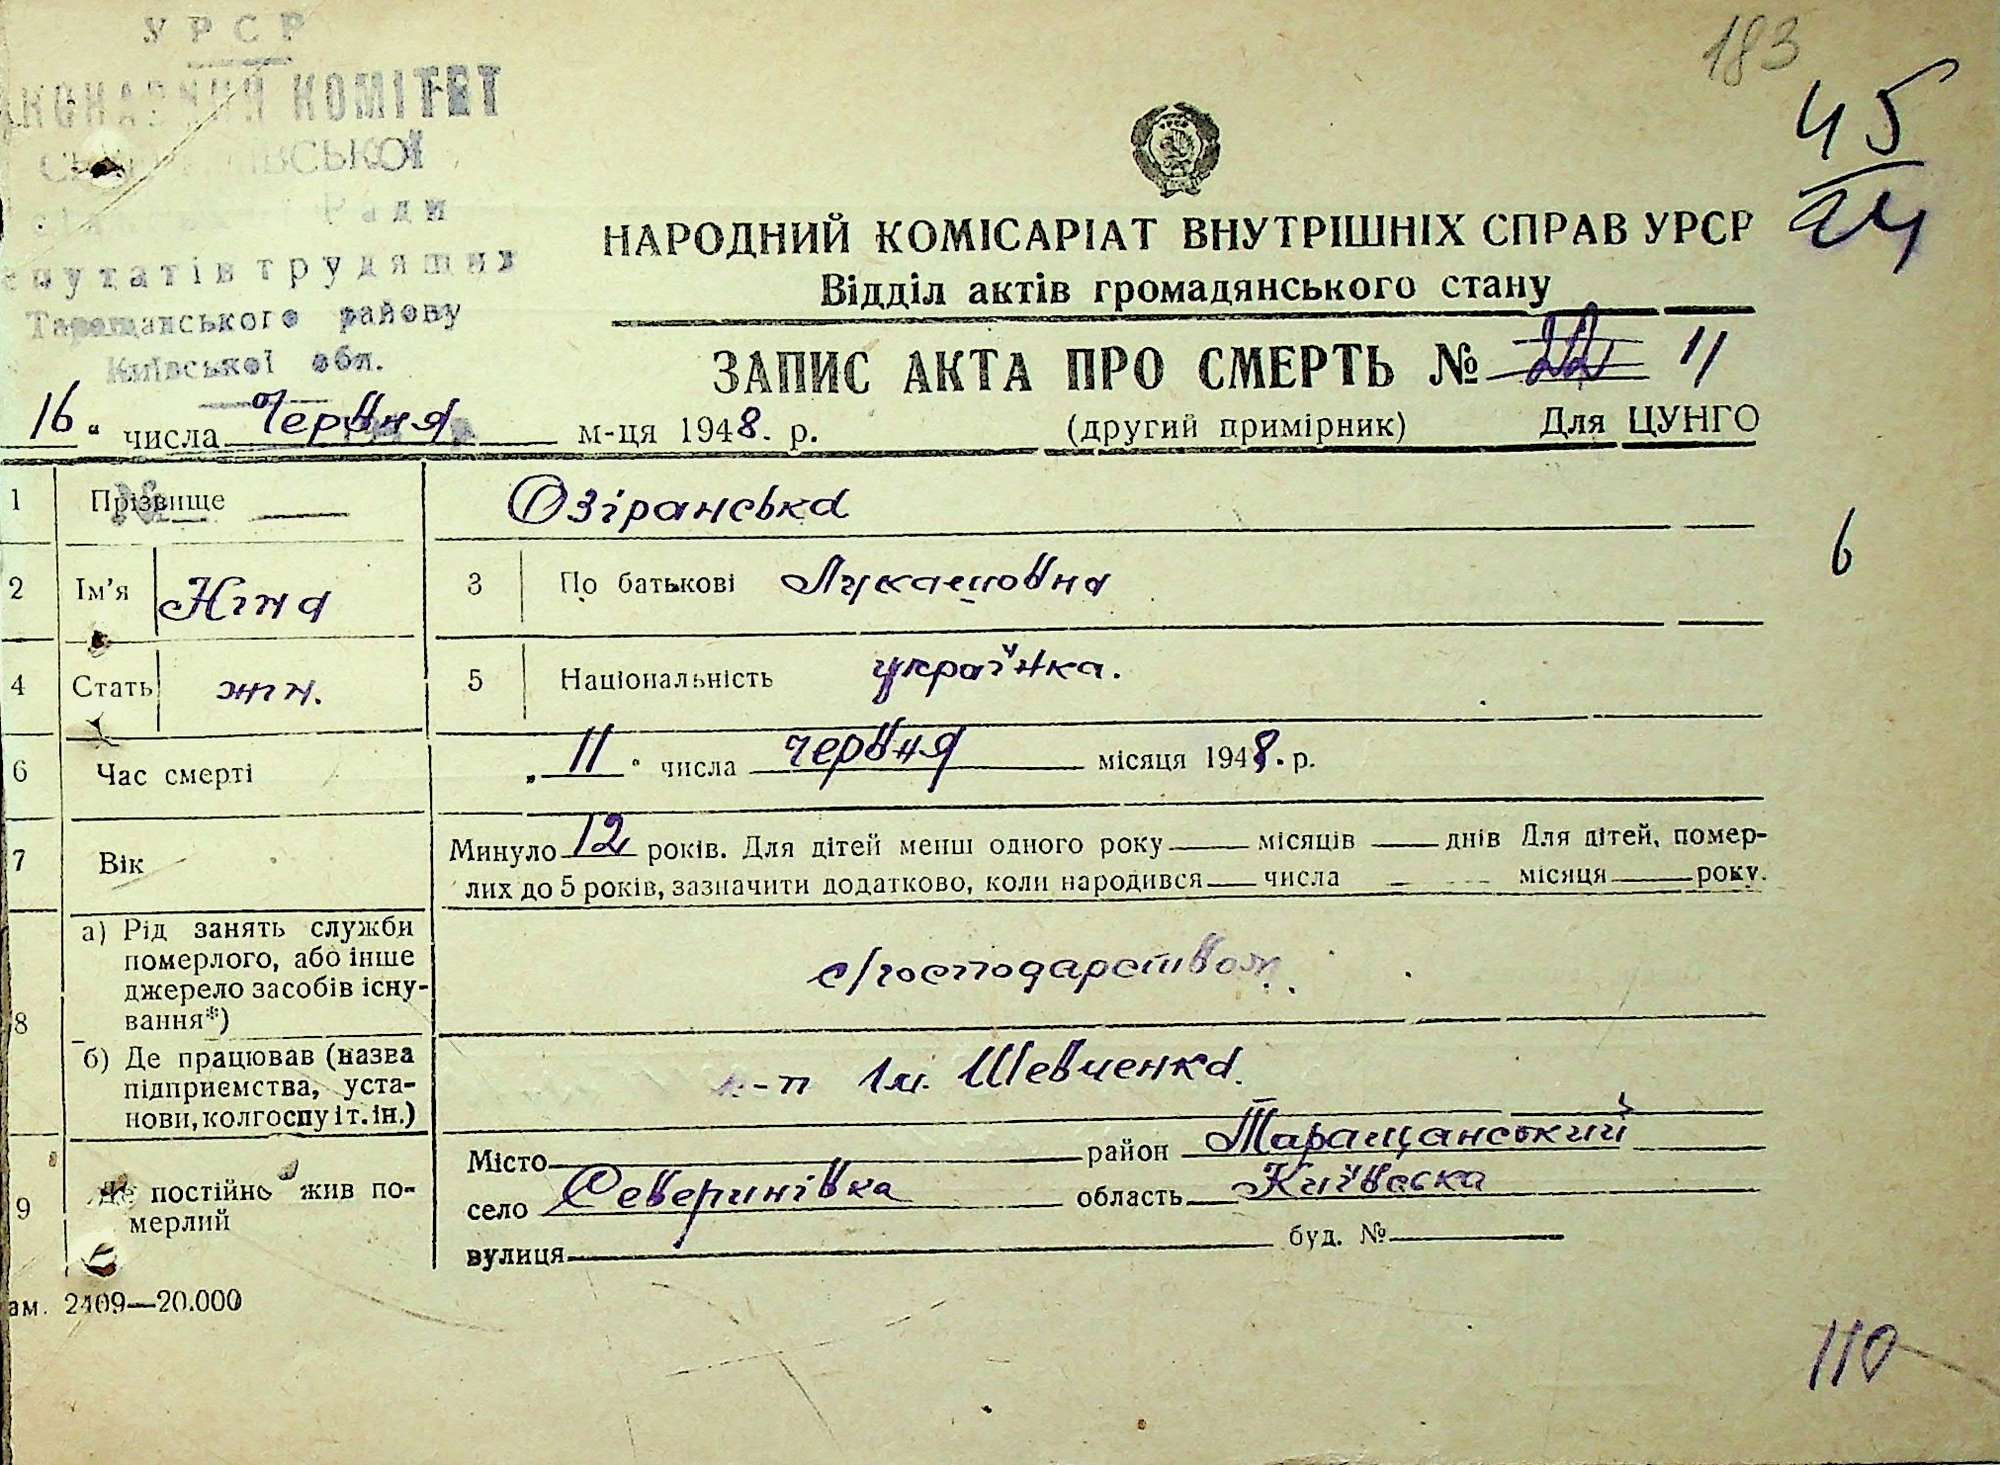 УРСР
КОМІТЕТ
Ради
депутатів трудящих
Таращанського району
Київської обл.
183
45
24
НАРОДНИЙ КОМІСАРІАТ ВНУТРІШНІХ СПРАВ УРСР
Відділ актів громадянського стану
ЗАПИС АКТА ПРО СМЕРТЬ № 22 11
16 " числа Червня м-ця 1948. р. (другий примірник) Для ЦУНГО
1 Прізвище Озіранська
№
6
2 Ім'я Ніна 3 По батькові Лукашовна
4 Стать жін. 5 Національність українка.
6 Час смерті „ 11 " числа червня місяця 1948. р.
7 Вік Минуло 12 років. Для дітей менш одного року місяців днів Для дітей, помер-
лих до 5 років, зазначити додатково, коли народився числа місяця року.
8 а) Рід занять служби
померлого, або інше
джерело засобів існу-
вання*)
с/господарством.
б) Де працював (назва
підприємства, уста-
нови, колгоспу і т. ін.)
к-п ім. Шевченка.
9 Де постійно жив по-
мерлий
Місто район Таращанський
село Северинівка область Київська
вулиця буд. №
ам. 2409—20.000
110